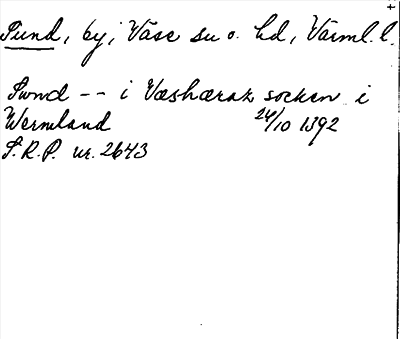 Sund, by, i Väse sn o. hd, Värml. l.
Swnd -- i Wæshæraz socken i
Wermland 24/10 1392
S.R.P. nr. 2643